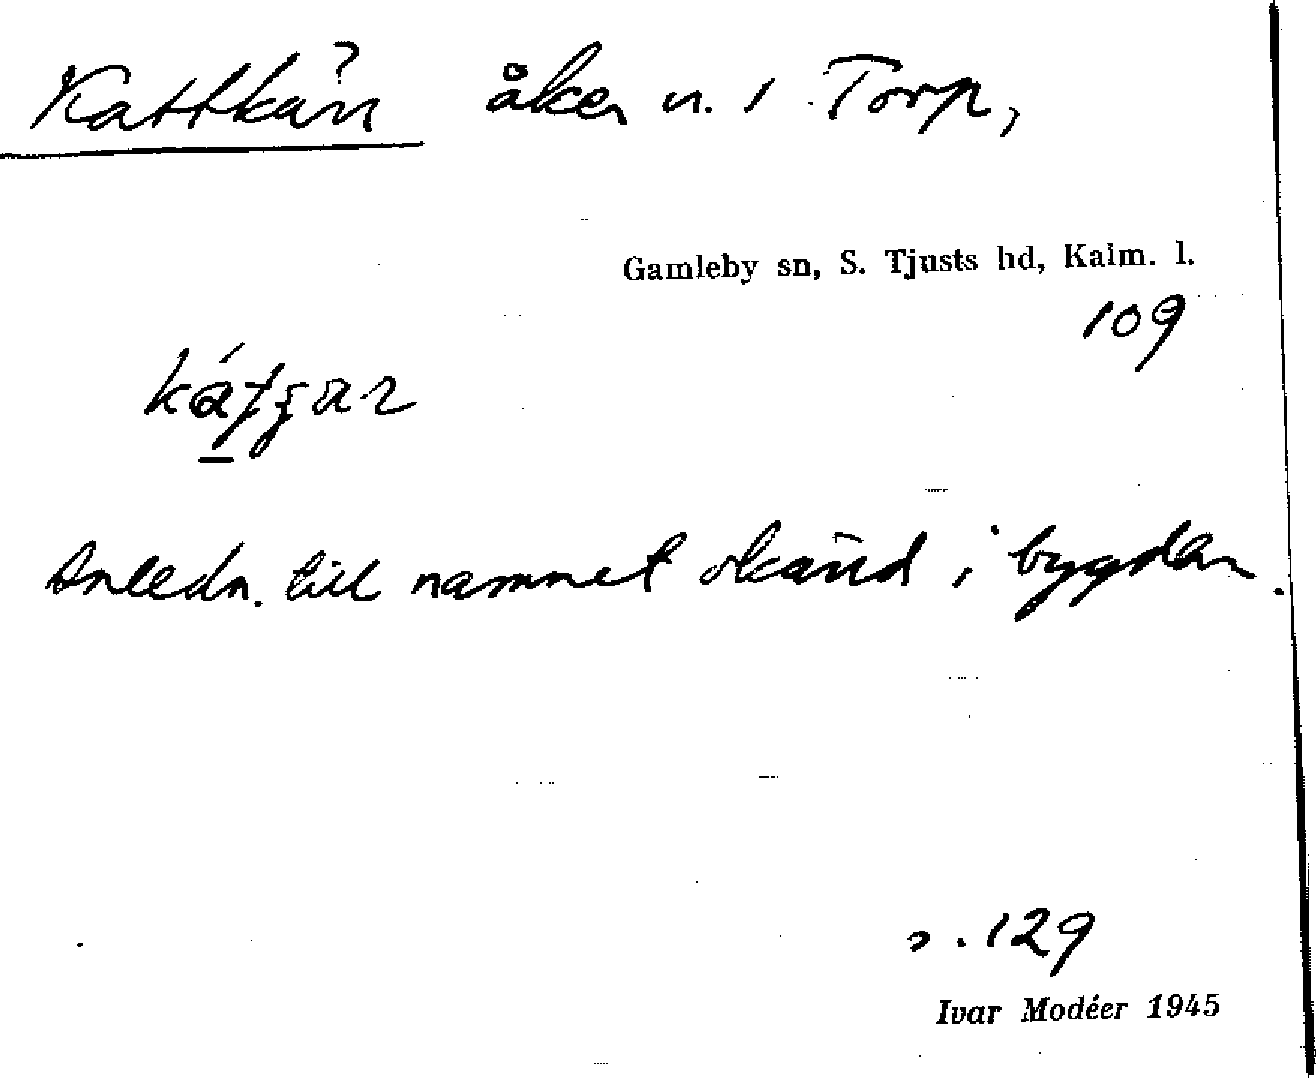 Kattkärr åker n. 1 Torp,
Gamleby sn, S. Tjusts hd, Kalm. l.
109
Anledn. till namnet okänd i bygden.
s. 129
Ivar Modéer 1945